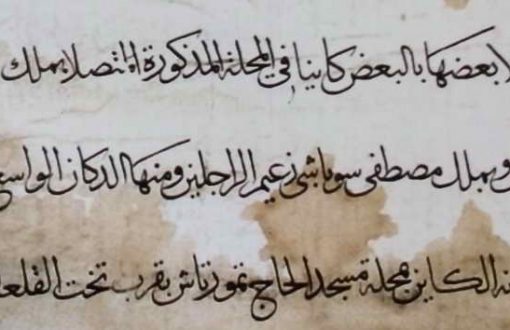 بعضها بالبعض كاينا في المحلة المذكورة المتصلا بملك
وبملك مصطفى سوباشي زعيم الراجلين ومنها الدكان الواسع
الكاين بمحلة مسجد الحاج تمورتاش بقرب تخت القلعة